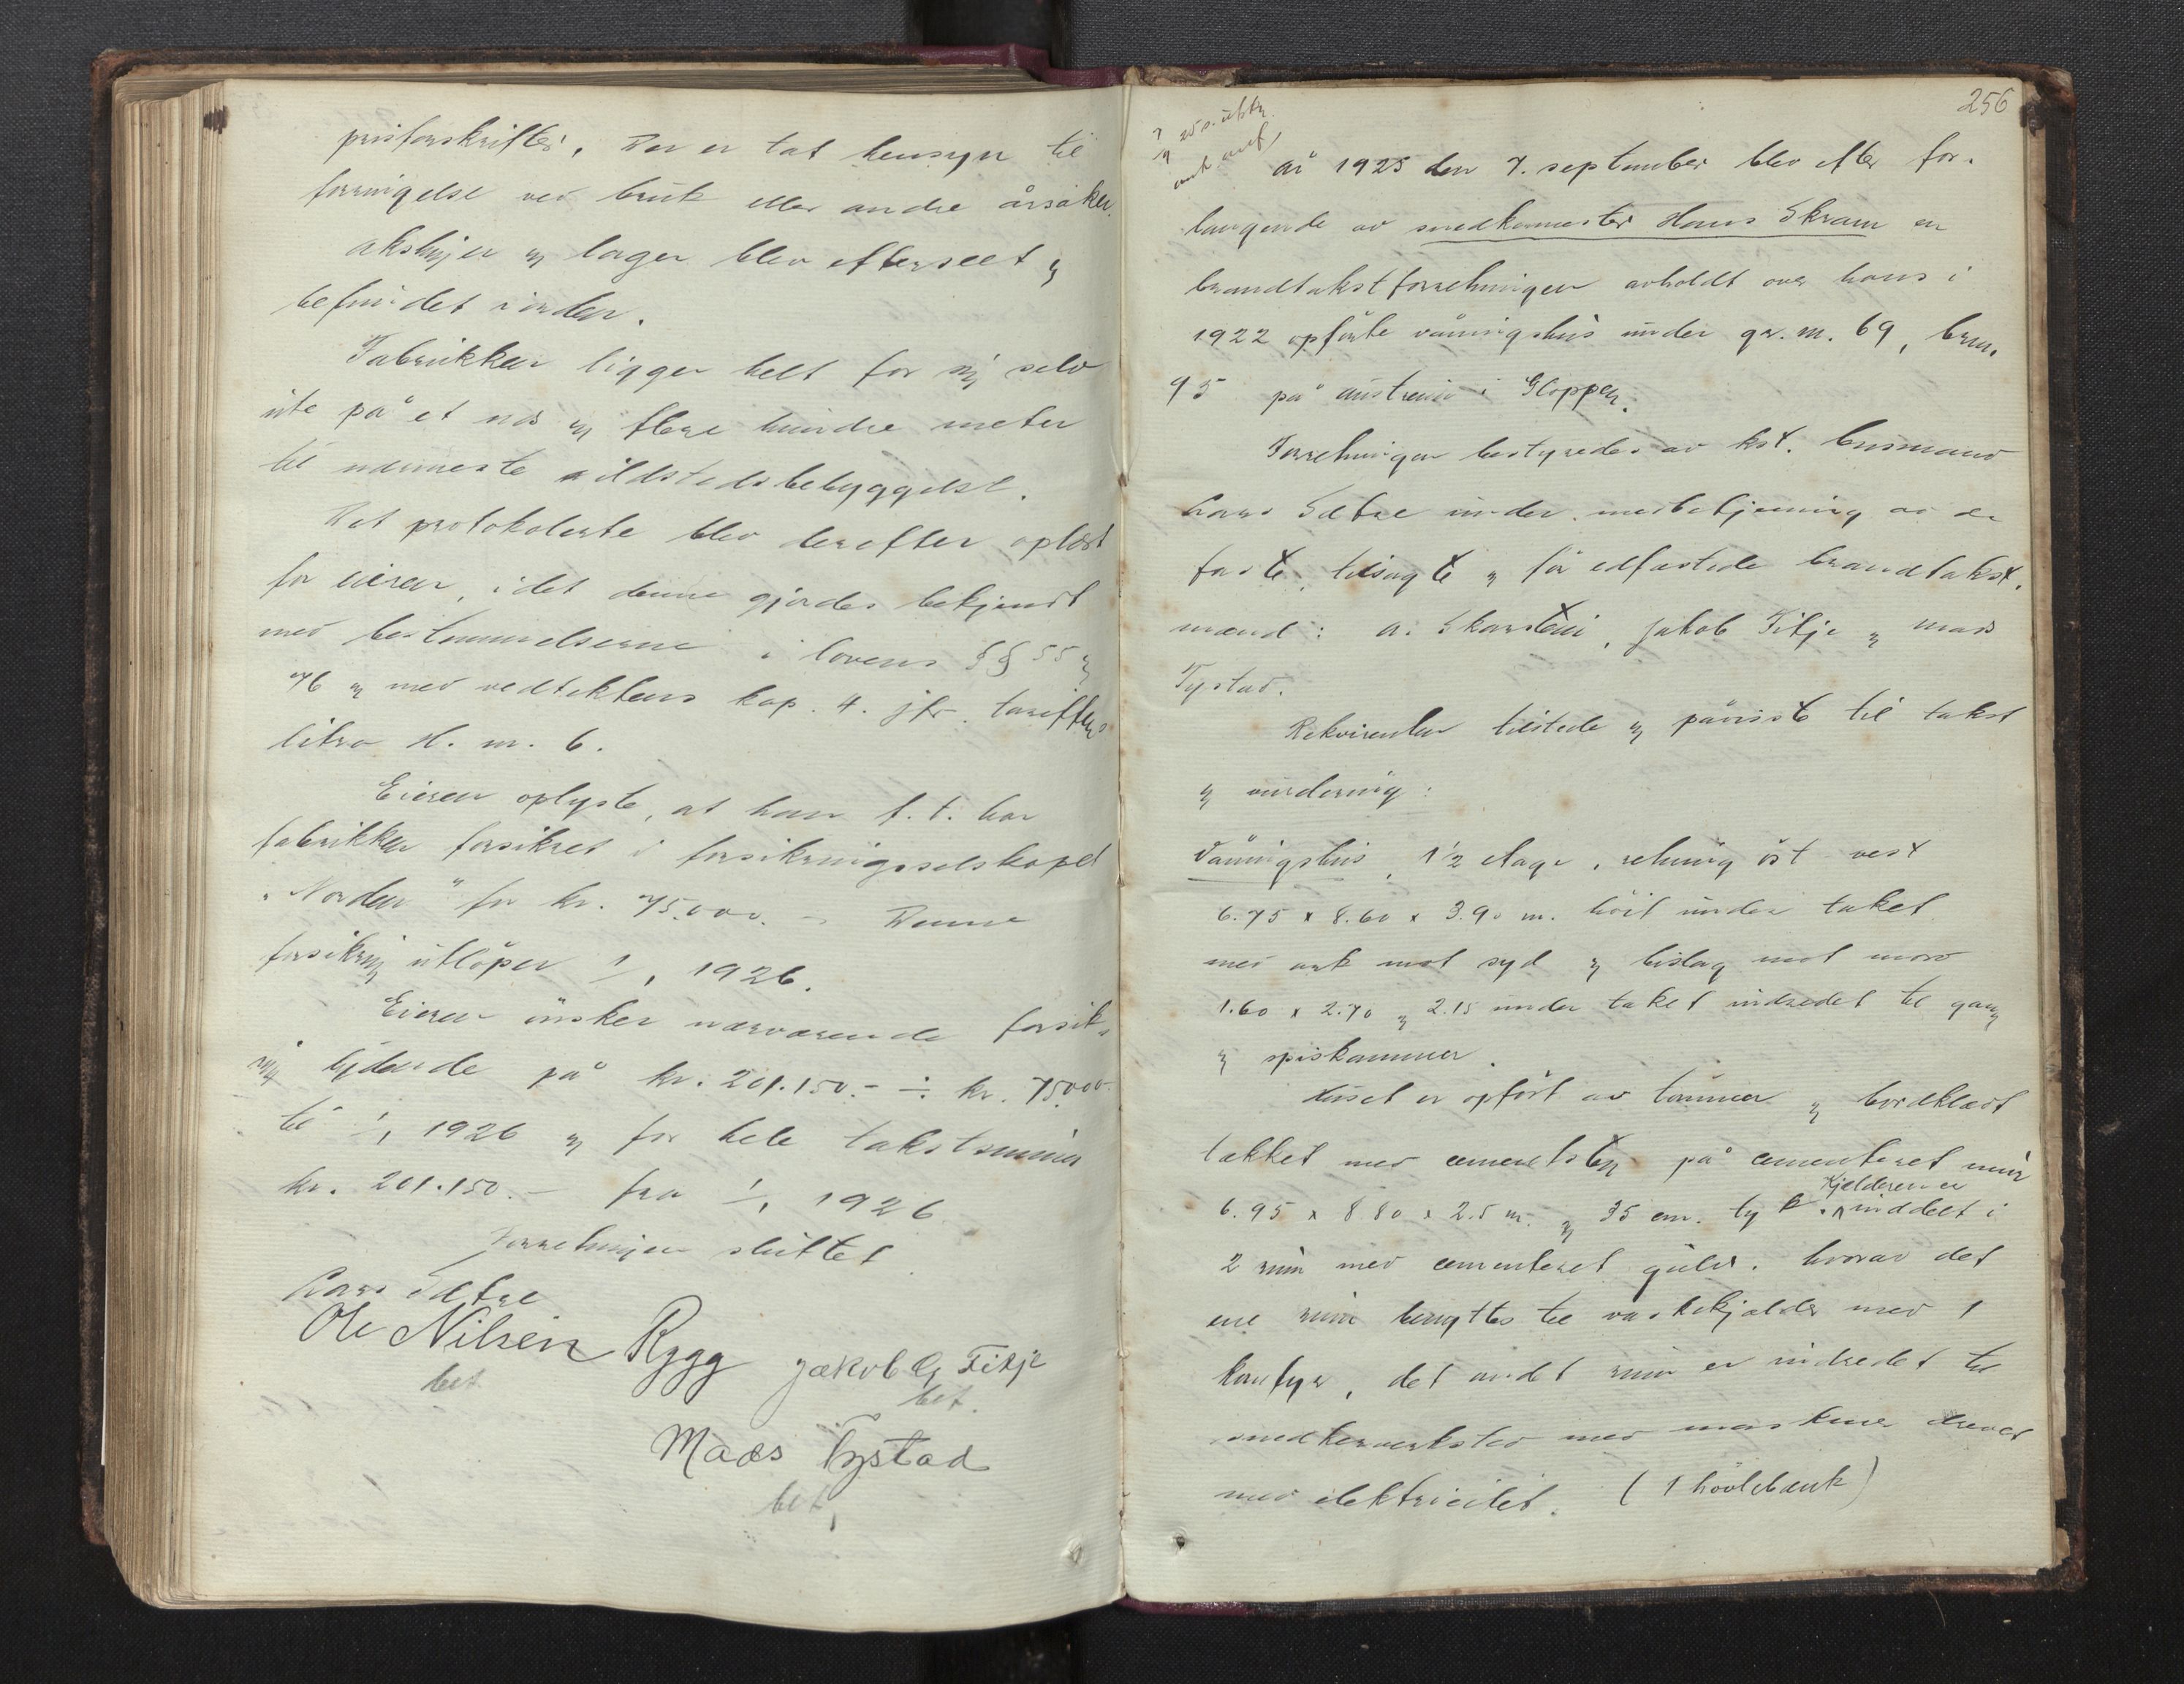 prisforskrifter. Der er tat hensyn til
forringelse ved bruk eller andre årsaker.
Akslinjer og lager blev efterseet og
befundet i orden.
Fabrikken ligger helt for sig selv
ute på et nes og flere hundre meter
til nærmeste ildstedsbebyggelse.
Det protokolerte blev derefter oplæst
for eieren, idet denne gjordes bekjendt
med bestemmelserne i lovens §§ 55 og
76 og med vedtektens kap. 4. jfr. tariffens
litra H. nr. 6.
Eieren oplyste, at han f. t. har
fabrikken forsikret i forsikringsselskapet
"Norden" for kr. 75.000.- Denne
forsikring utløper 1/1 1926.
Eieren ønsker nærværende forsik-
ring lydende på kr. 201.150.- ÷ kr. 75000.-
til 1/1 1926 og for hele takstsummen
kr. 201.150.- fra 1/1 1926
Forretningen sluttet
Lars Sætre
Ole Nilsen Rygg Jakob G. Fitje
bet. bet.
Mads Tystad
bet.
256
utskr.
År 1925 den 7. september blev efter for-
langende av snedkermester Hans Skram en
brandtakstforretningen avholdt over hans i
1922 opførte våningshus under gr. nr. 69, brn.
95 på Austrein i Gloppen.
Forretningen bestyredes av kst. lensmand
Lars Sætre under medbetjening av de
faste, tilsagte og før edfæstede brandtakst-
mænd: A. Skarstein, Jakob Fitje og Mads
Tystad.
Rekvirenten tilstede og påviste til takst
og vurdering:
Våningshus, 1½ etage, retning øst-vest
6.75 x 8.60 x 3.90 m. høit under taket
med ark mot syd og bislag mot nord
1.60 x 2.70 og 2.15 under taket indredet til gang
og spiskammer.
Huset er opført av tømmer og bordklædt
tækket med cementsten på cementeret mur
6.95 x 8.80 x 2.5 m. og 35 cm. tyk. Kjelderen er inddelt i
2 rum med cementeret gulv. hvorav det
ene rum benyttes til vaskekjælder med 1
komfyr, det andet rum er indredet til
snedkerverksted med maskiner drevet
med elektricitet. (1 høvlebænk)